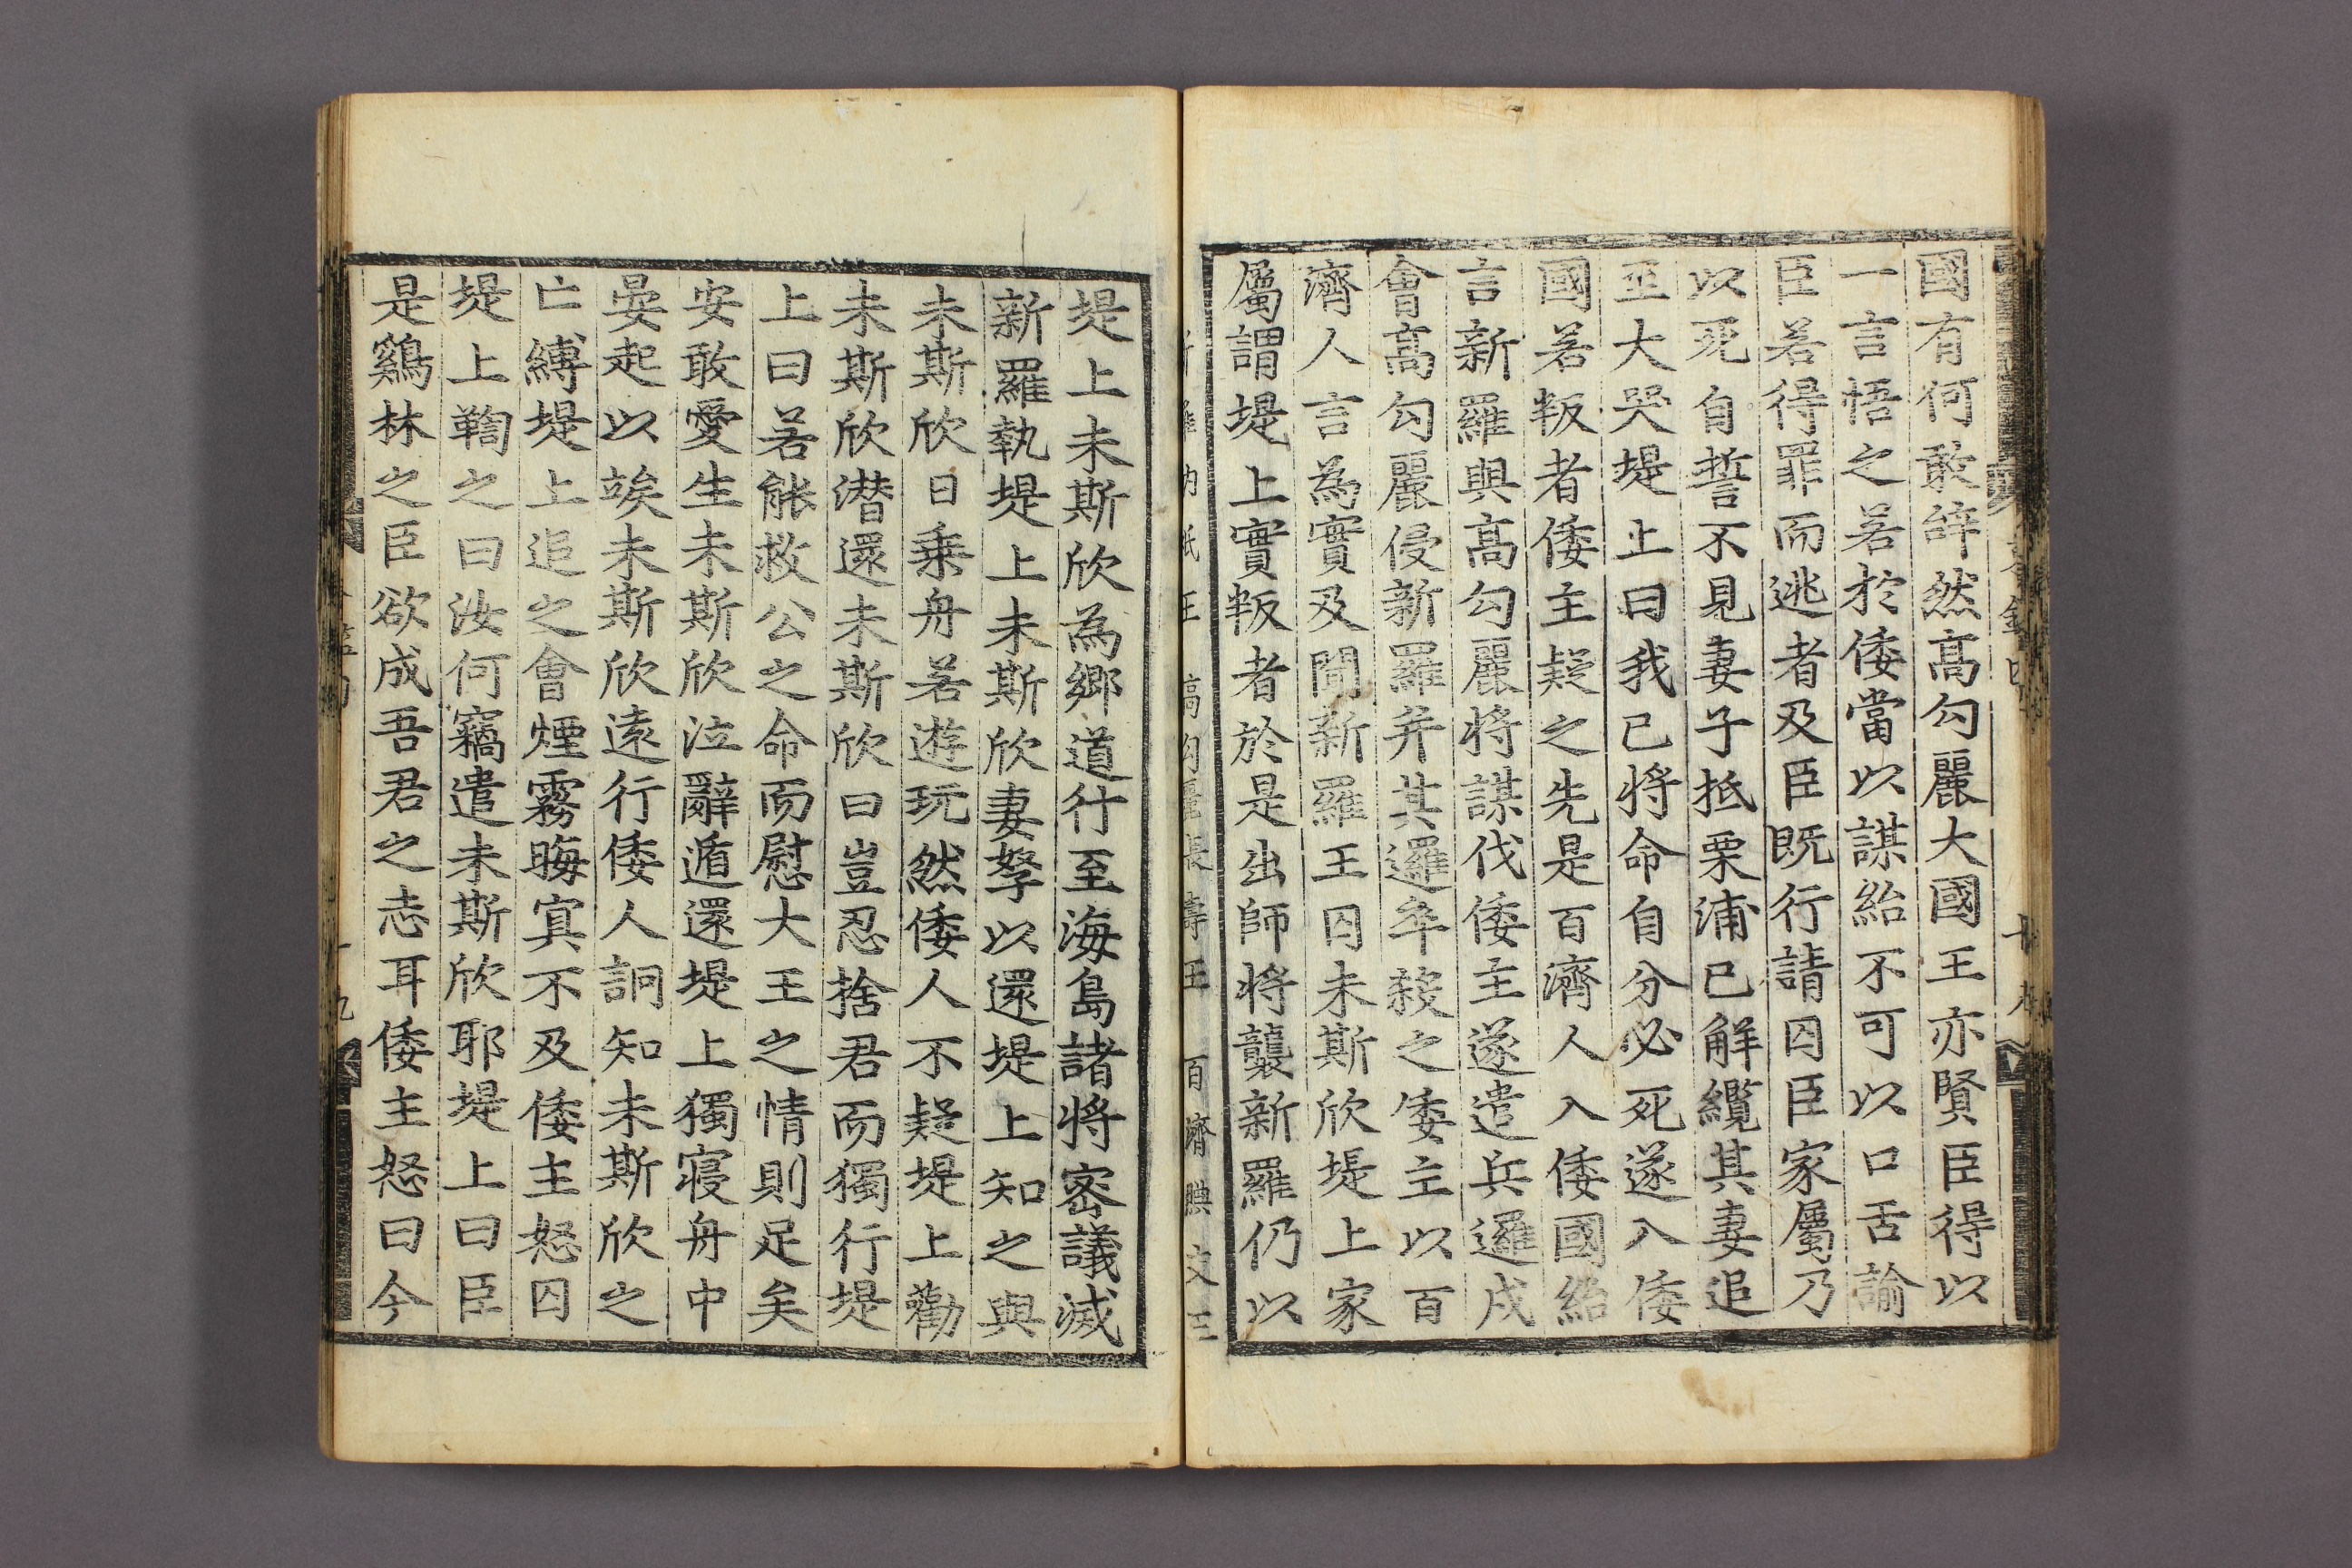 國有何敢辝然高勾麗大國王亦賢臣得以
一言悟之若於倭當以謀紿不可以口舌諭
臣若得罪而逃者及臣既行請囚臣家屬乃
以死自誓不見妻子抵栗浦已解纜其妻追
至大哭堤上曰我已將命自分必死遂入倭
國若叛者倭主疑之先是百濟人入倭國紿
言新羅與高勾麗將謀伐倭主遂遣兵邏戍
會高勾麗侵新羅并其邏卒殺之倭主以百
濟人言為實及聞新羅王囚未斯欣堤上家
屬謂堤上實叛者於是出師將襲新羅仍以
訥祇王 高勾麗長壽王 百濟腆支王
堤上未斯欣為鄉道行至海島諸將密議滅
新羅執堤上未斯欣妻孥以還堤上知之與
未斯欣日乗舟若遊玩然倭人不疑堤上勸
未斯欣潜還未斯欣曰豈忍捨君而獨行堤
上曰若能救公之命而慰大王之情則足矣
安敢愛生未斯欣泣辭遁還堤上獨寢舟中
晏起以竢未斯欣遠行倭人詗知未斯欣之
亡縛堤上追之會煙霧晦冥不及倭主怒囚
堤上鞫之曰汝何竊遣未斯欣耶堤上曰臣
是鷄林之臣欲成吾君之志耳倭主怒曰今